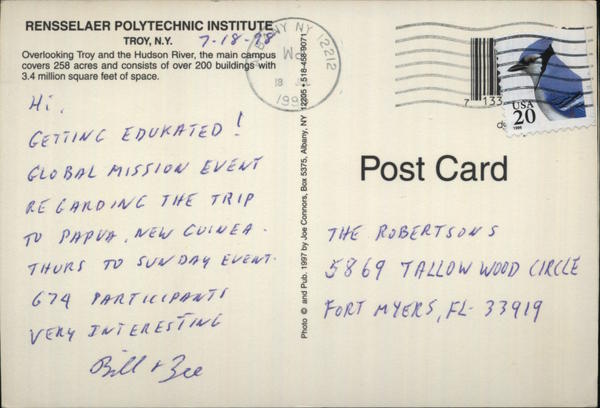 RENSSELAER POLYTECHNIC INSTITUTE
TROY, N.Y. 7-18-98
Overlooking Troy and the Hudson River, the main campus
covers 258 acres and consists of over 200 buildings with
3.4 million square feet of space.
Hi,
GETTING EDUKATED!
GLOBAL MISSION EVENT
REGARDING THE TRIP
TO PAPUA, NEW GUINEA.
THURS TO SUNDAY EVENT.
674 PARTICIPANTS
VERY INTERESTING
Bill + Bee
Photo © and Pub. 1997 by Joe Connors, Box 5375, Albany, NY 12205 • 518-458-9071
NY 12212
PM
18
199
7 133
USA
20
1996
Post Card
THE ROBERTSONS
5869 TALLOW WOOD CIRCLE
FORT MYERS, FL- 33919